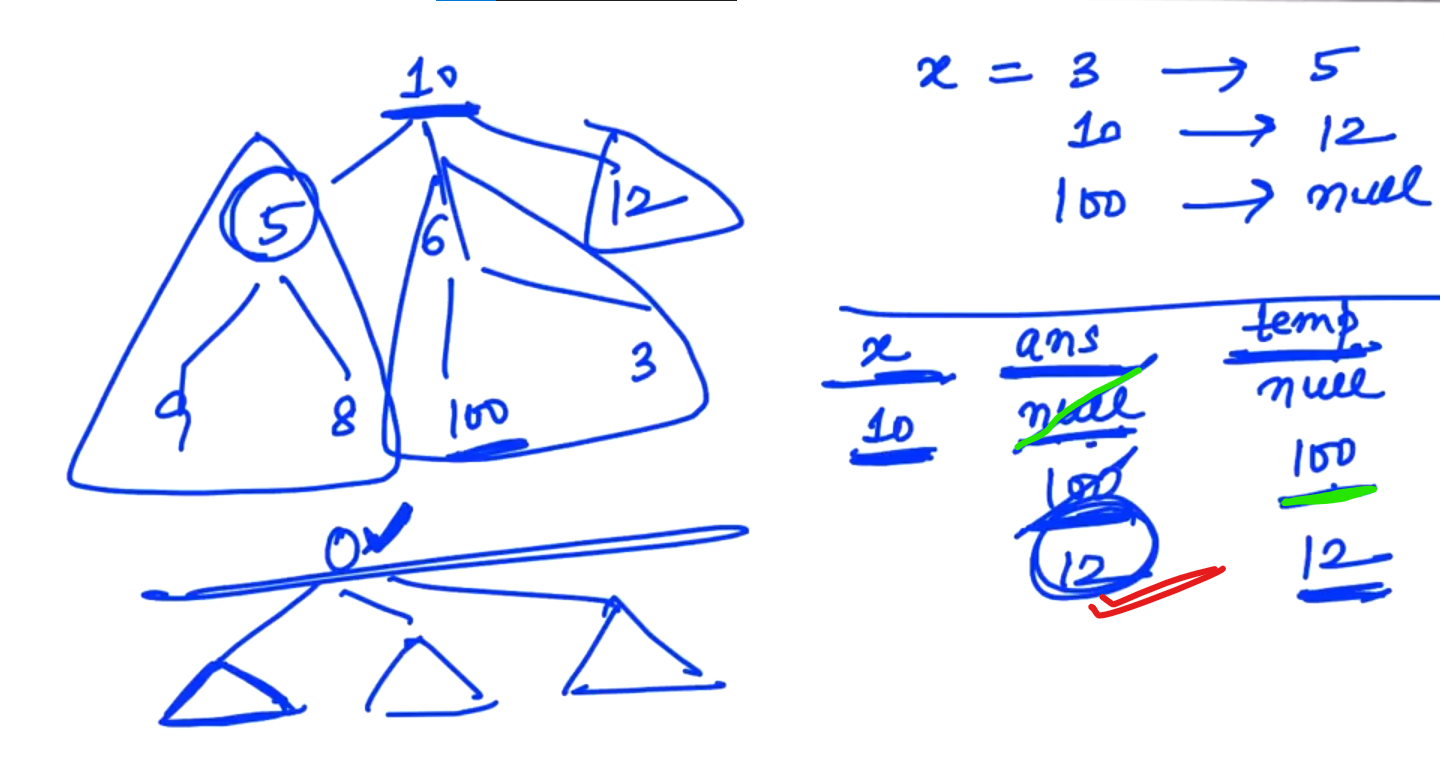 10
5
6
12
9
8
100
3
0
x = 3 → 5
10 → 12
100 → null
x ans temp
10 null null
100 100
12 12